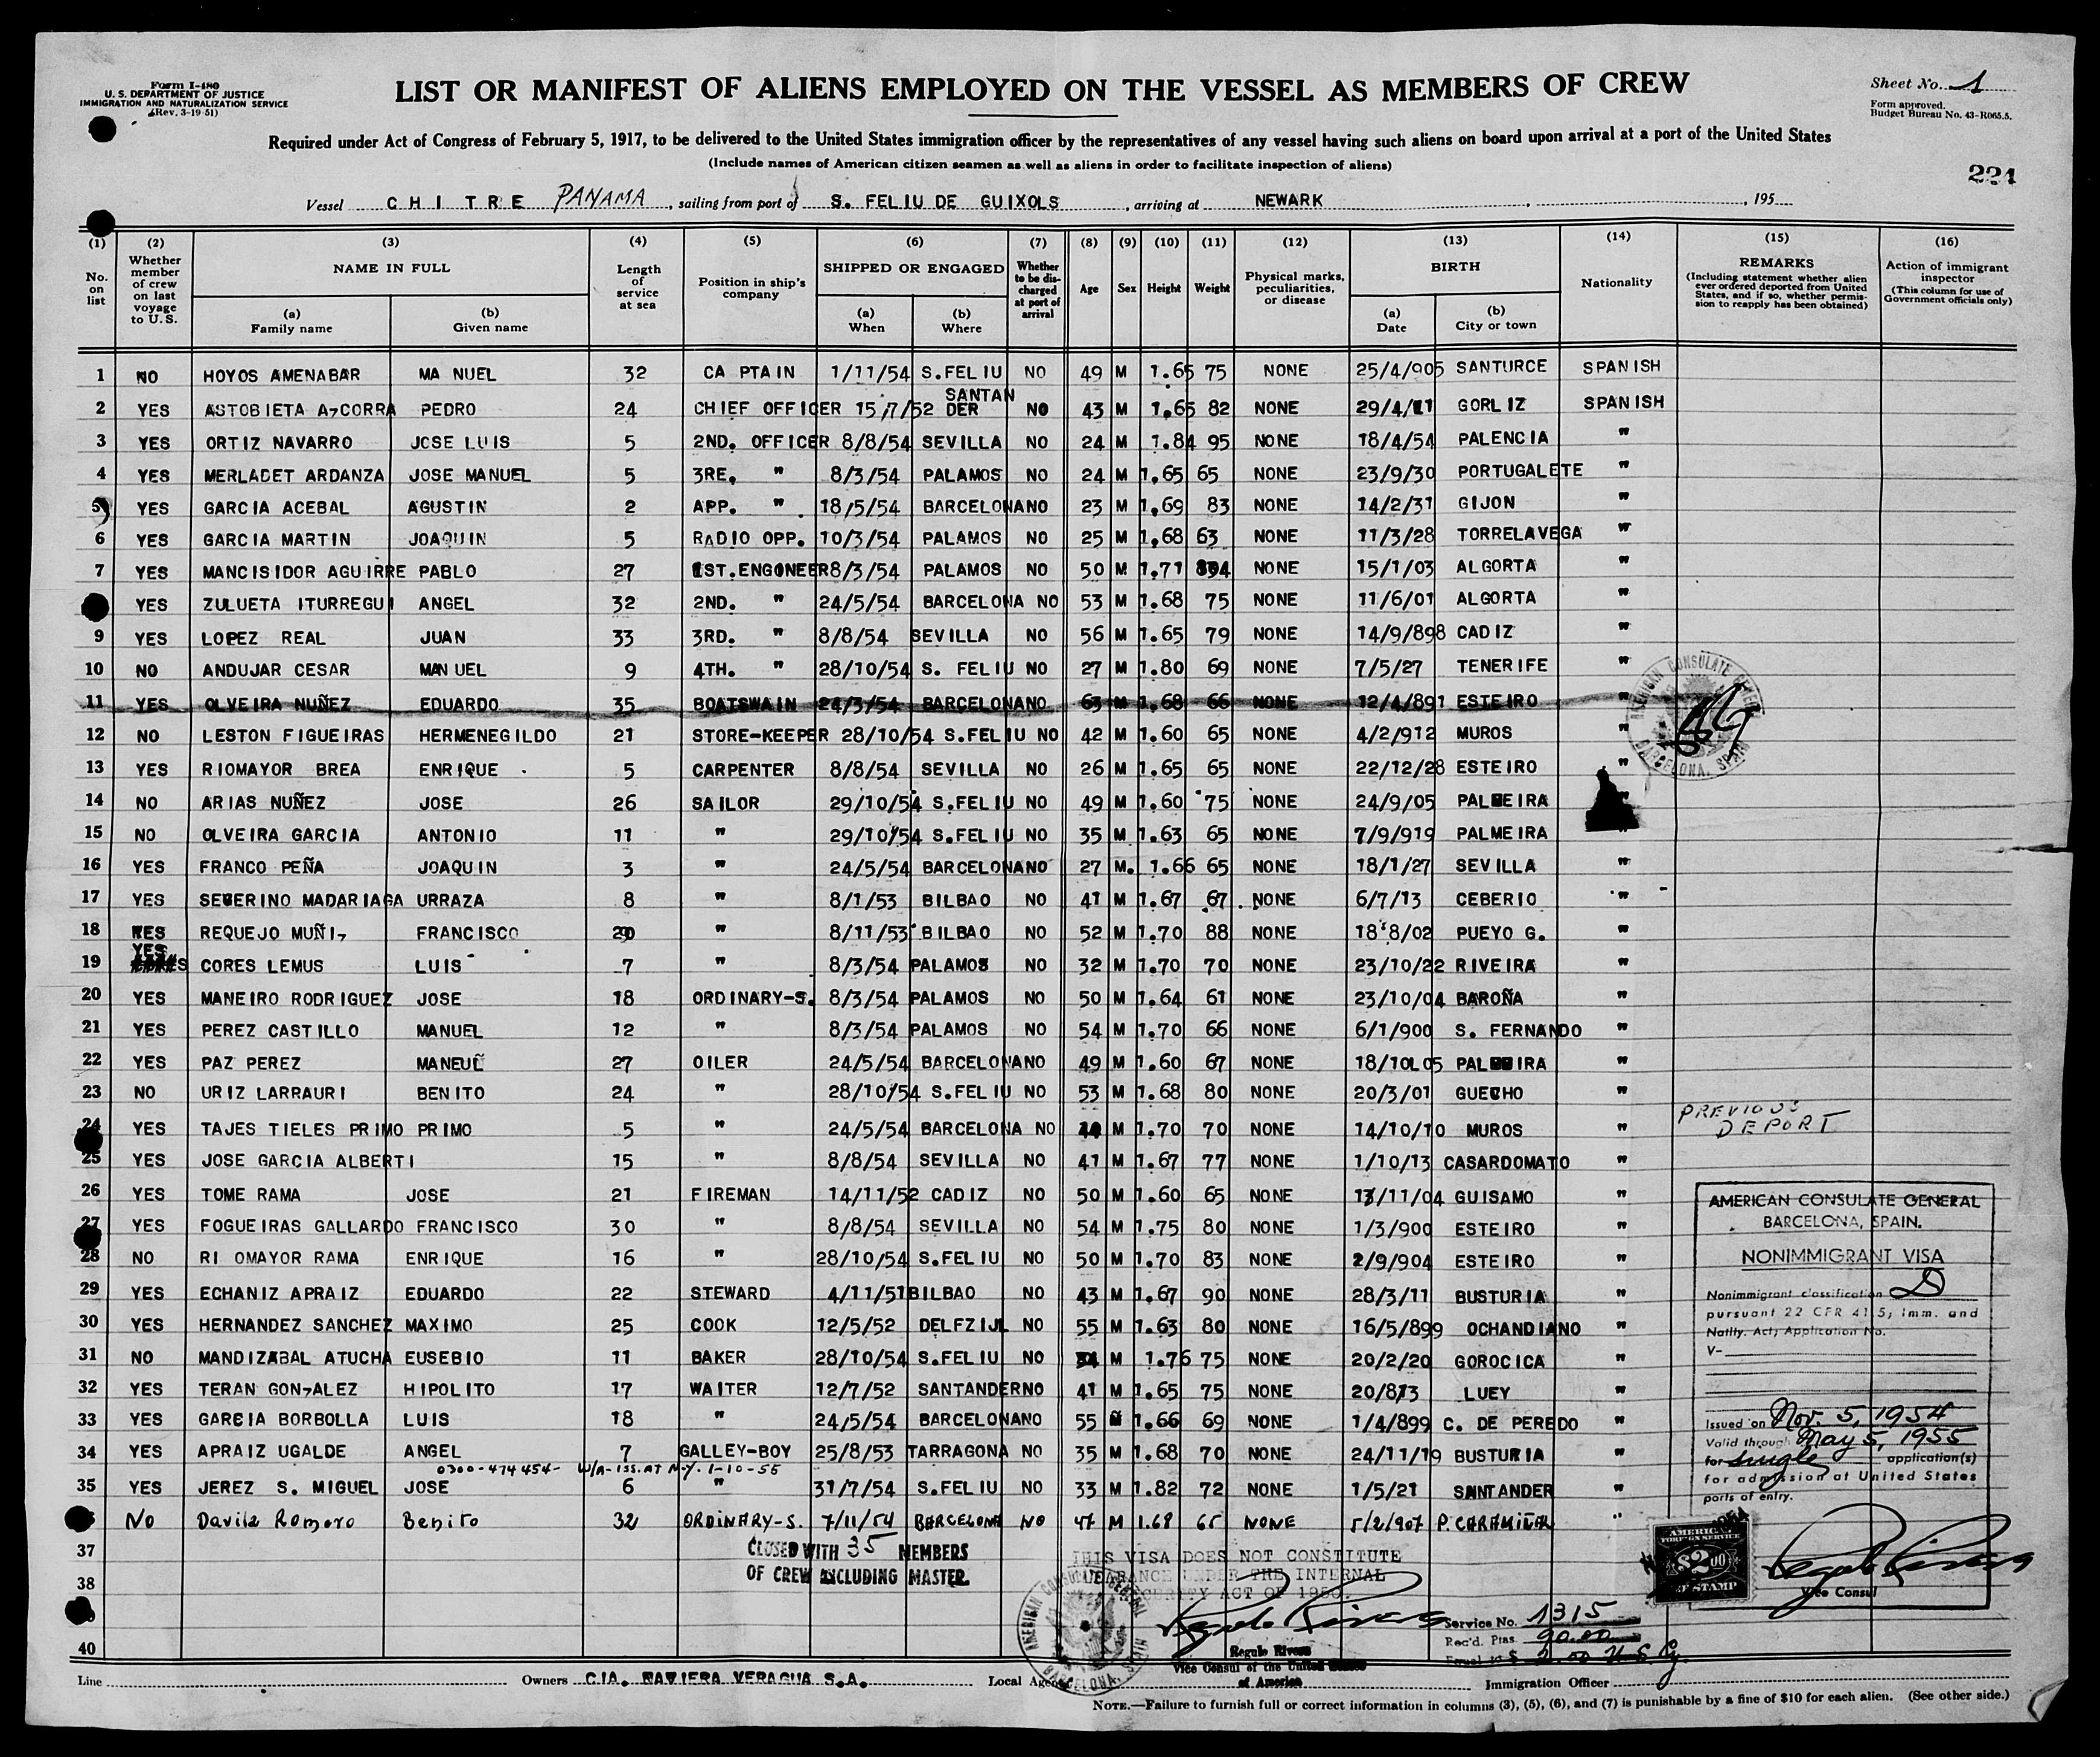 Form I-480
U. S. DEPARTMENT OF JUSTICE
IMMIGRATION AND NATURALIZATION SERVICE
(Rev. 3-19-51)
LIST OR MANIFEST OF ALIENS EMPLOYED ON THE VESSEL AS MEMBERS OF CREW
Sheet No. 1
Form approved.
Budget Bureau No. 43-R065.5.
Required under Act of Congress of February 5, 1917, to be delivered to the United States immigration officer by the representatives of any vessel having such aliens on board upon arrival at a port of the United States
(Include names of American citizen seamen as well as aliens in order to facilitate inspection of aliens)
224
Vessel CHITRE PANAMA, sailing from port of S. FELIU DE GUIXOLS, arriving at NEWARK, , 195
(1) (2) (3) (4) (5) (6) (7) (8) (9) (10) (11) (12) (13) (14) (15) (16)
No. on list Whether member of crew on last voyage to U.S. NAME IN FULL (a) Family name (b) Given name Length of service at sea Position in ship's company SHIPPED OR ENGAGED (a) When (b) Where Whether to be discharged at port of arrival Age Sex Height Weight Physical marks, peculiarities, or disease BIRTH (a) Date (b) City or town Nationality REMARKS (Including statement whether alien ever ordered deported from United States, and if so, whether permission to reapply has been obtained) Action of immigrant inspector (This column for use of Government officials only)
1 NO HOYOS AMENABAR MA NUEL 32 CA PTAIN 1/11/54 S.FELIU NO 49 M 1.65 75 NONE 25/4/905 SANTURCE SPANISH
2 YES ASTOBIETA AZCORRA PEDRO 24 CHIEF OFFICER 15/7/52 SANTANDER NO 43 M 1,65 82 NONE 29/4/11 GORLIZ SPANISH
3 YES ORTIZ NAVARRO JOSE LUIS 5 2ND. OFFICER 8/8/54 SEVILLA NO 24 M 1.84 95 NONE 18/4/54 PALENCIA "
4 YES MERLADET ARDANZA JOSE MANUEL 5 3RE. " 8/3/54 PALAMOS NO 24 M 1,65 65 NONE 23/9/30 PORTUGALETE "
5 YES GARCIA ACEBAL AGUSTIN 2 APP. " 18/5/54 BARCELONA NO 23 M 1,69 83 NONE 14/2/31 GIJON "
6 YES GARCIA MARTIN JOAQUIN 5 RADIO OPP. 10/3/54 PALAMOS NO 25 M 1,68 63 NONE 11/3/28 TORRELAVEGA "
7 YES MANCISIDOR AGUIRRE PABLO 27 1ST.ENGONEER 8/3/54 PALAMOS NO 50 M 1,71 NONE 15/1/03 ALGORTA "
YES ZULUETA ITURREGUI ANGEL 32 2ND. " 24/5/54 BARCELONA NO 53 M 1.68 75 NONE 11/6/01 ALGORTA "
9 YES LOPEZ REAL JUAN 33 3RD. " 8/8/54 SEVILLA NO 56 M 1.65 79 NONE 14/9/898 CADIZ "
10 NO ANDUJAR CESAR MANUEL 9 4TH. " 28/10/54 S. FELIU NO 27 M 1.80 69 NONE 7/5/27 TENERIFE "
11 YES OLVEIRA NUÑEZ EDUARDO 35 BOATSWAIN 24/3/54 BARCELONA NO 63 M 1,68 66 NONE 12/4/891 ESTEIRO "
12 NO LESTON FIGUEIRAS HERMENEGILDO 21 STORE-KEEPER 28/10/54 S.FELIU NO 42 M 1.60 65 NONE 4/2/912 MUROS "
13 YES RIOMAYOR BREA ENRIQUE 5 CARPENTER 8/8/54 SEVILLA NO 26 M 1.65 65 NONE 22/12/28 ESTEIRO
14 NO ARIAS NUÑEZ JOSE 26 SAILOR 29/10/54 S.FELIU NO 49 M 1.60 75 NONE 24/9/05 PALMEIRA
15 NO OLVEIRA GARCIA ANTONIO 11 " 29/10/54 S.FELIU NO 35 M 1.63 65 NONE 7/9/919 PALMEIRA "
16 YES FRANCO PEÑA JOAQUIN 3 " 24/5/54 BARCELONA NO 27 M. 1.66 65 NONE 18/1/27 SEVILLA "
17 YES SEVERINO MADARIAGA URRAZA 8 " 8/1/53 BILBAO NO 41 M 1.67 67 NONE 6/7/13 CEBERIO "
18 YES REQUEJO MUÑIZ FRANCISCO 29 " 8/11/53 BILBAO NO 52 M 1.70 88 NONE 18/8/02 PUEYO G. "
19 YES CORES LEMUS LUIS 7 " 8/3/54 PALAMOS NO 32 M 1.70 70 NONE 23/10/22 RIVEIRA "
20 YES MANEIRO RODRIGUEZ JOSE 18 ORDINARY-S. 8/3/54 PALAMOS NO 50 M 1.64 61 NONE 23/10/04 BAROÑA "
21 YES PEREZ CASTILLO MANUEL 12 " 8/3/54 PALAMOS NO 54 M 1.70 66 NONE 6/1/900 S. FERNANDO "
22 YES PAZ PEREZ MANEUL 27 OILER 24/5/54 BARCELONA NO 49 M 1.60 67 NONE 18/10/05 PALMEIRA "
23 NO URIZ LARRAURI BENITO 24 " 28/10/54 S.FELIU NO 53 M 1.68 80 NONE 20/3/01 GUECHO "
24 YES TAJES TIELES PRIMO PRIMO 5 " 24/5/54 BARCELONA NO M 1.70 70 NONE 14/10/10 MUROS " PREVIOUS DEPORT
25 YES JOSE GARCIA ALBERTI 15 " 8/8/54 SEVILLA NO 41 M 1.67 77 NONE 1/10/13 CASARDOMATO "
26 YES TOME RAMA JOSE 21 FIREMAN 14/11/52 CADIZ NO 50 M 1.60 65 NONE 13/11/04 GUISAMO "
27 YES FOGUEIRAS GALLARDO FRANCISCO 30 " 8/8/54 SEVILLA NO 54 M 1.75 80 NONE 1/3/900 ESTEIRO "
28 NO RI OMAYOR RAMA ENRIQUE 16 " 28/10/54 S.FELIU NO 50 M 1.70 83 NONE 2/9/904 ESTEIRO "
29 YES ECHANIZ APRAIZ EDUARDO 22 STEWARD 4/11/51 BILBAO NO 43 M 1.67 90 NONE 28/3/11 BUSTURIA "
30 YES HERNANDEZ SANCHEZ MAXIMO 25 COOK 12/5/52 DELFZIJL NO 55 M 1.63 80 NONE 16/5/899 OCHANDIANO "
31 NO MANDIZABAL ATUCHA EUSEBIO 11 BAKER 28/10/54 S.FELIU NO M 1.76 75 NONE 20/2/20 GOROCICA "
32 YES TERAN GONZALEZ HIPOLITO 17 WAITER 12/7/52 SANTANDER NO 41 M 1.65 75 NONE 20/8/13 LUEY "
33 YES GARCIA BORBOLLA LUIS 18 " 24/5/54 BARCELONA NO 55 M 1.66 69 NONE 1/4/899 C. DE PEREDO "
34 YES APRAIZ UGALDE ANGEL 7 GALLEY-BOY 25/8/53 TARRAGONA NO 35 M 1.68 70 NONE 24/11/19 BUSTURIA "
0300-474454- W/A-ISS. AT N.Y. 1-10-55
35 YES JEREZ S. MIGUEL JOSE 6 " 31/7/54 S.FELIU NO 33 M 1.82 72 NONE 1/5/21 SANTANDER "
No Davila Romero Benito 32 ORDINARY-S. 7/11/54 BARCELONA NO 47 M 1.68 65 NONE 5/2/907 P. CARAMIÑAL "
37
38
40
CLOSED WITH 35 MEMBERS
OF CREW EXCLUDING MASTER.
THIS VISA DOES NOT CONSTITUTE
CLEARANCE UNDER THE INTERNAL
SECURITY ACT OF 1950.
Regulo Rivera
Vice Consul of the United States
of America
AMERICAN CONSULATE GENERAL
BARCELONA, SPAIN
AMERICAN CONSULATE GENERAL
BARCELONA, SPAIN.
NONIMMIGRANT VISA
Nonimmigrant classification D
pursuant 22 CFR 41.5; Imm. and
Natlty. Act; Application No.
V-
Issued on Nov. 5, 1954
Valid through May 5, 1955
for single application(s)
for admission at United States
ports of entry.
AMERICAN
FOREIGN SERVICE
$2.00
FEE STAMP
Vice Consul
Service No. 1315
Rec'd. Ptas. 90.00
Equal to $ 2.00 U.S. Cy.
Line Owners CIA. NAVIERA VERAGUA S.A. Local Agents Immigration Officer
NOTE.—Failure to furnish full or correct information in columns (3), (5), (6), and (7) is punishable by a fine of $10 for each alien. (See other side.)